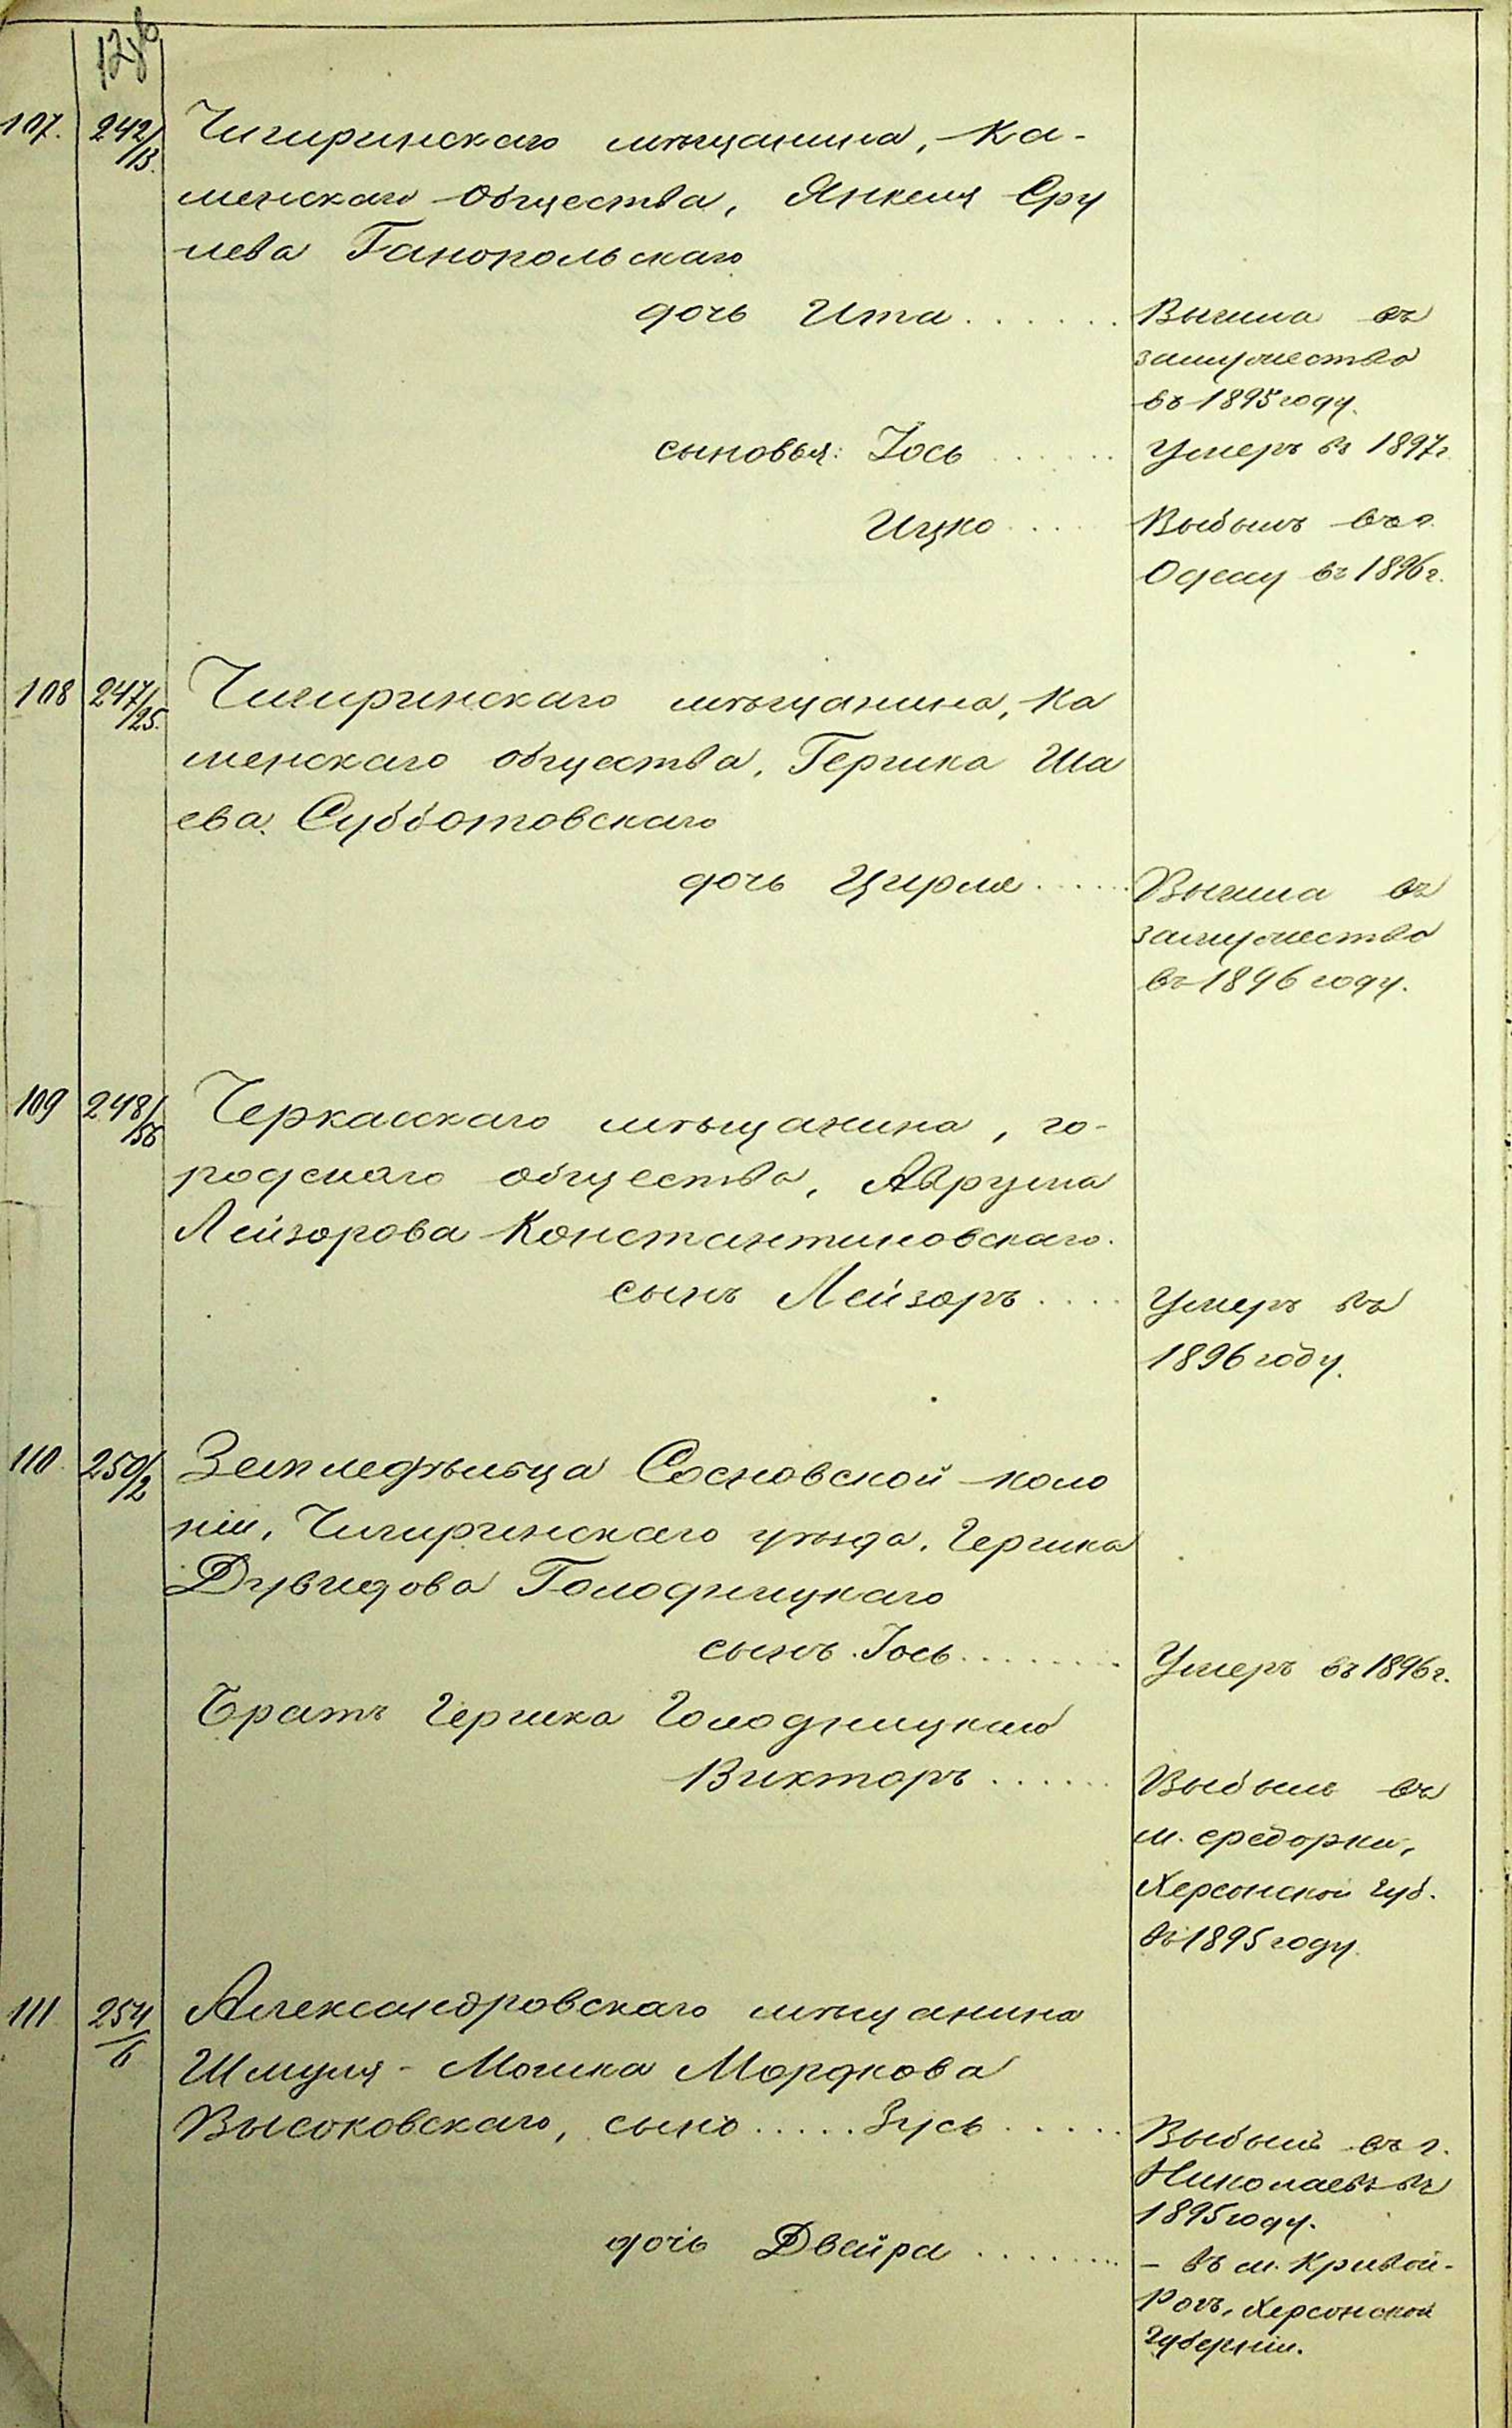 107. 242/13. Чигиринскаго мѣщанина, Ка-
менскаго общества, Янкеля Сру
лева Ганопольскаго
дочь Ита . . . . . . Вышла въ
замужество
въ 1895 году.
сыновья: Іось . . . . . . Умеръ въ 1897г.
Ицко . . . . Выбылъ въ г.
Одессу въ 1896г.
108 247/25. Чигиринскаго мѣщанина, Ка
менскаго общества, Гершка Ша
ева Субботовскаго
дочь Цирля . . . . . Вышла въ
замужество
въ 1896 году.
109 248/56 Черкасскаго мѣщанина, го-
родскаго общества, Аврума
Лейзорова Константиновскаго.
сынъ Лейзоръ . . . . Умеръ въ
1896 году.
110. 250/2 Земледѣльца Сосновской коло
ніи, Чигиринскаго уѣзда, Гершка
Дувидова Голодницкаго
сынъ Іось . . . . . . . . Умеръ въ 1896г.
Братъ Гершка Голодницкаго
Викторъ . . . . . . Выбылъ въ
м.
Херсонской губ.
въ 1895 году.
111 254/6 Александровскаго мѣщанина
Шмуля-Мошка Мордкова
Высоковскаго, сынъ . . . . . Зусь . . . . . Выбылъ въ г.
Николаевъ въ
1895 году.
дочь Двейра . . . . . . . . – въ м. Кривой-
Рогъ, Херсонской
губерніи.